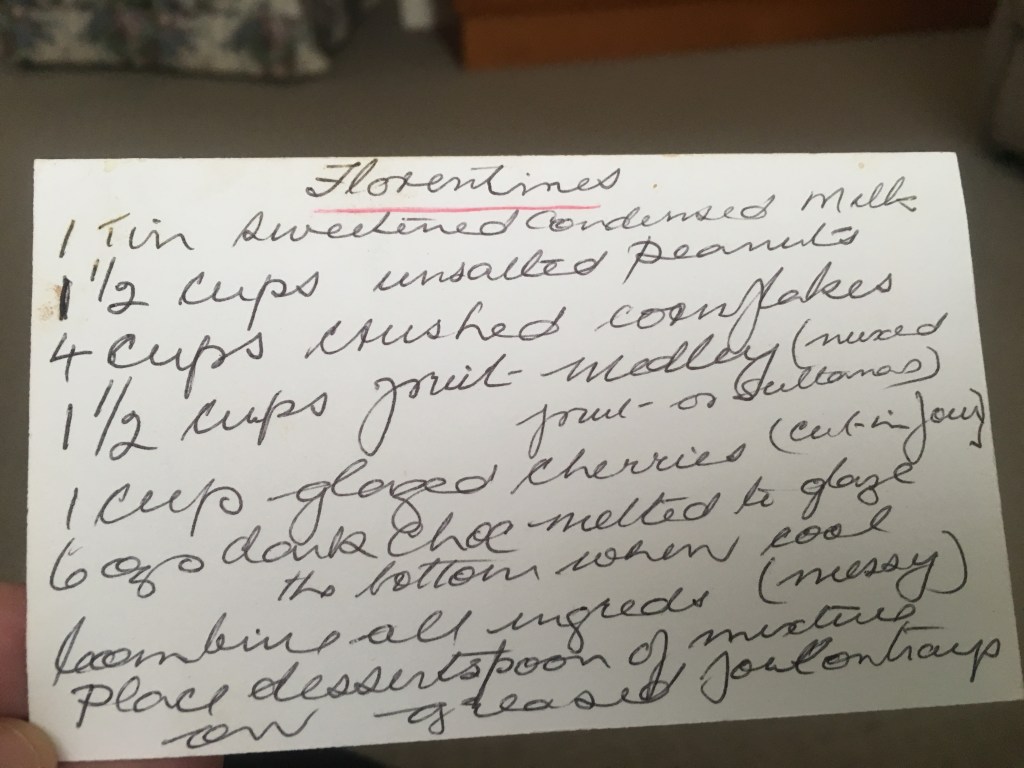 Florentines
1 Tin sweetened Condensed Milk
1 1/2 cups unsalted Peanuts
4 cups crushed cornflakes
1 1/2 cups fruit medley (mixed
fruit or Sultanas)
1 cup glazed cherries (cut in four)
6 ozs dark choc melted to glaze
the bottom when cool
Combine all ingreds (messy)
Place dessertspoon of mixture
on greased foil on trays